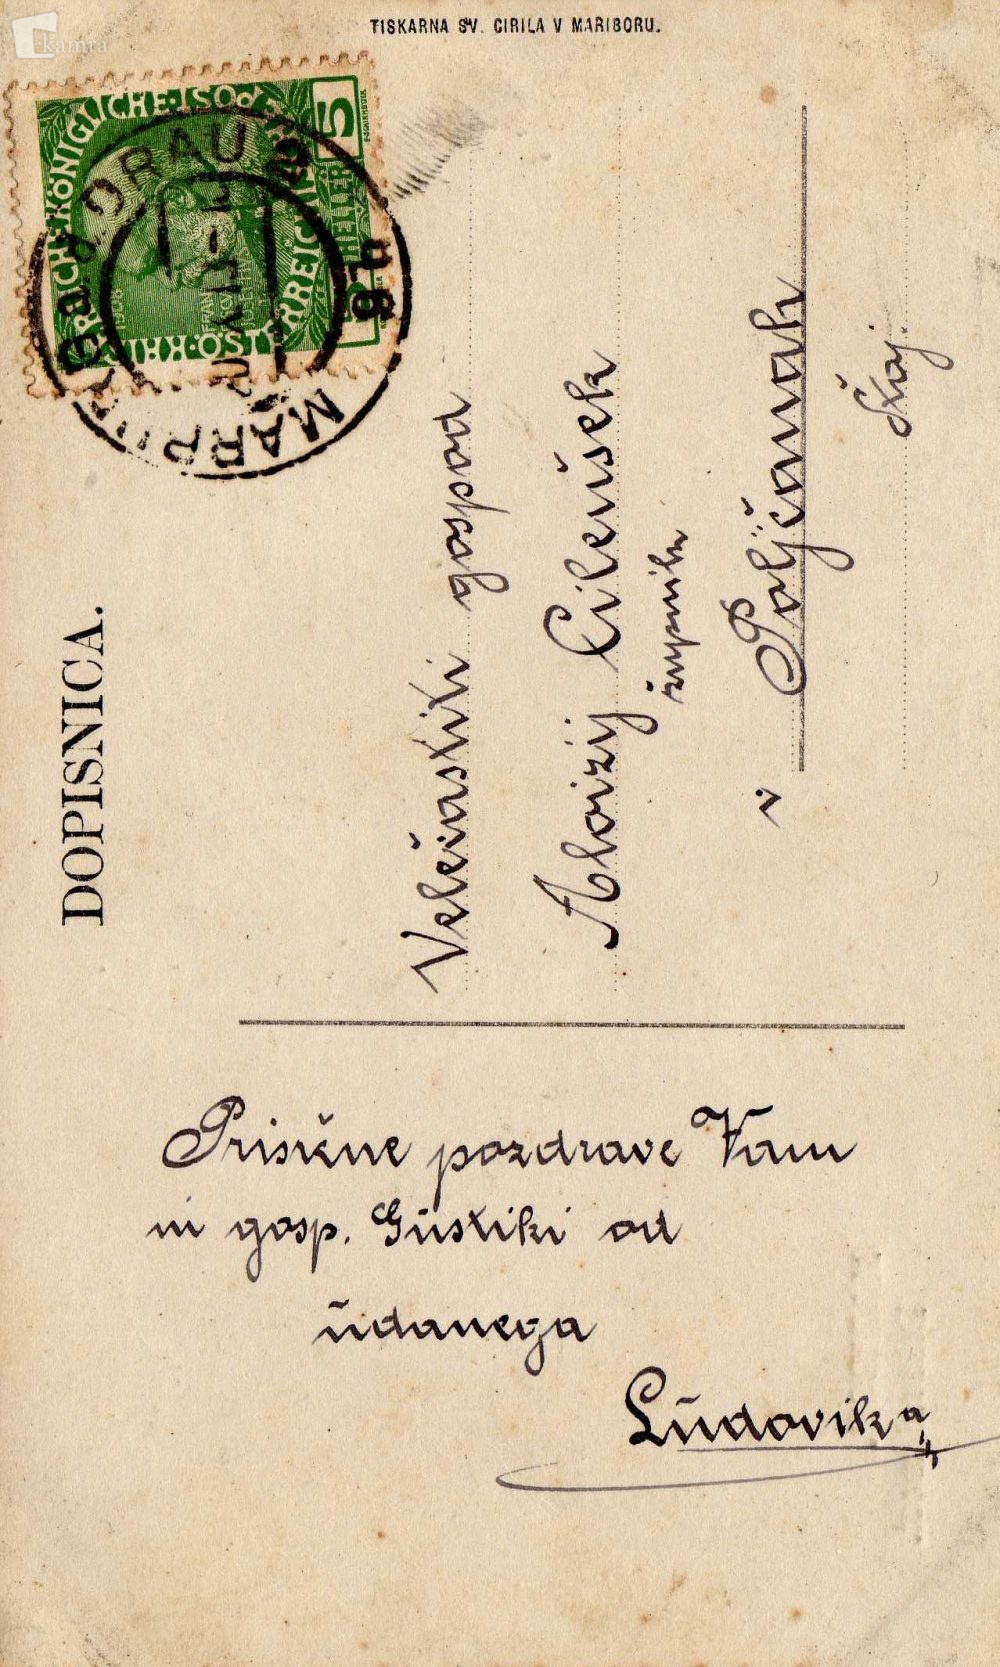 TISKARNA SV. CIRILA V MARIBORU.
kamra
K·K·ÖSTERREICHISCHE
5
HELLER
1908
MARBURG a. d. DRAU 2
DOPISNICA.
Velečastiti gospod
Alojzij Cilenšek
župnik
v Poljčanah
Štaj.
Prisrčne pozdrave Vam
in gosp. Gustiki od
udanega
Ludovika